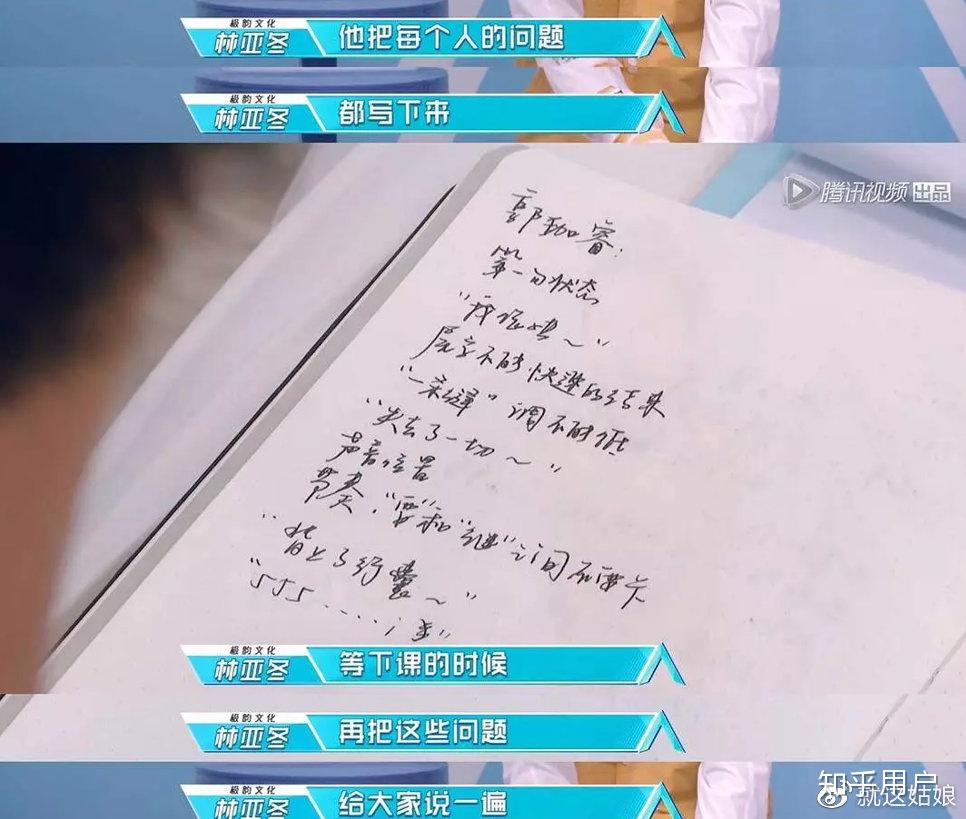 极韵文化
林亚冬 他把每个人的问题
极韵文化
林亚冬 都写下来
腾讯视频 出品
郭劲睿:
第一句状态
尾音不能快速的结束
调不能低
"失去了一切～"
声音位置
节奏,"要"和 之间不要卡
"背上了行囊～"
极韵文化
林亚冬 等下课的时候
极韵文化
林亚冬 再把这些问题
极韵文化
林亚冬 给大家说一遍
知乎用户
就这姑娘